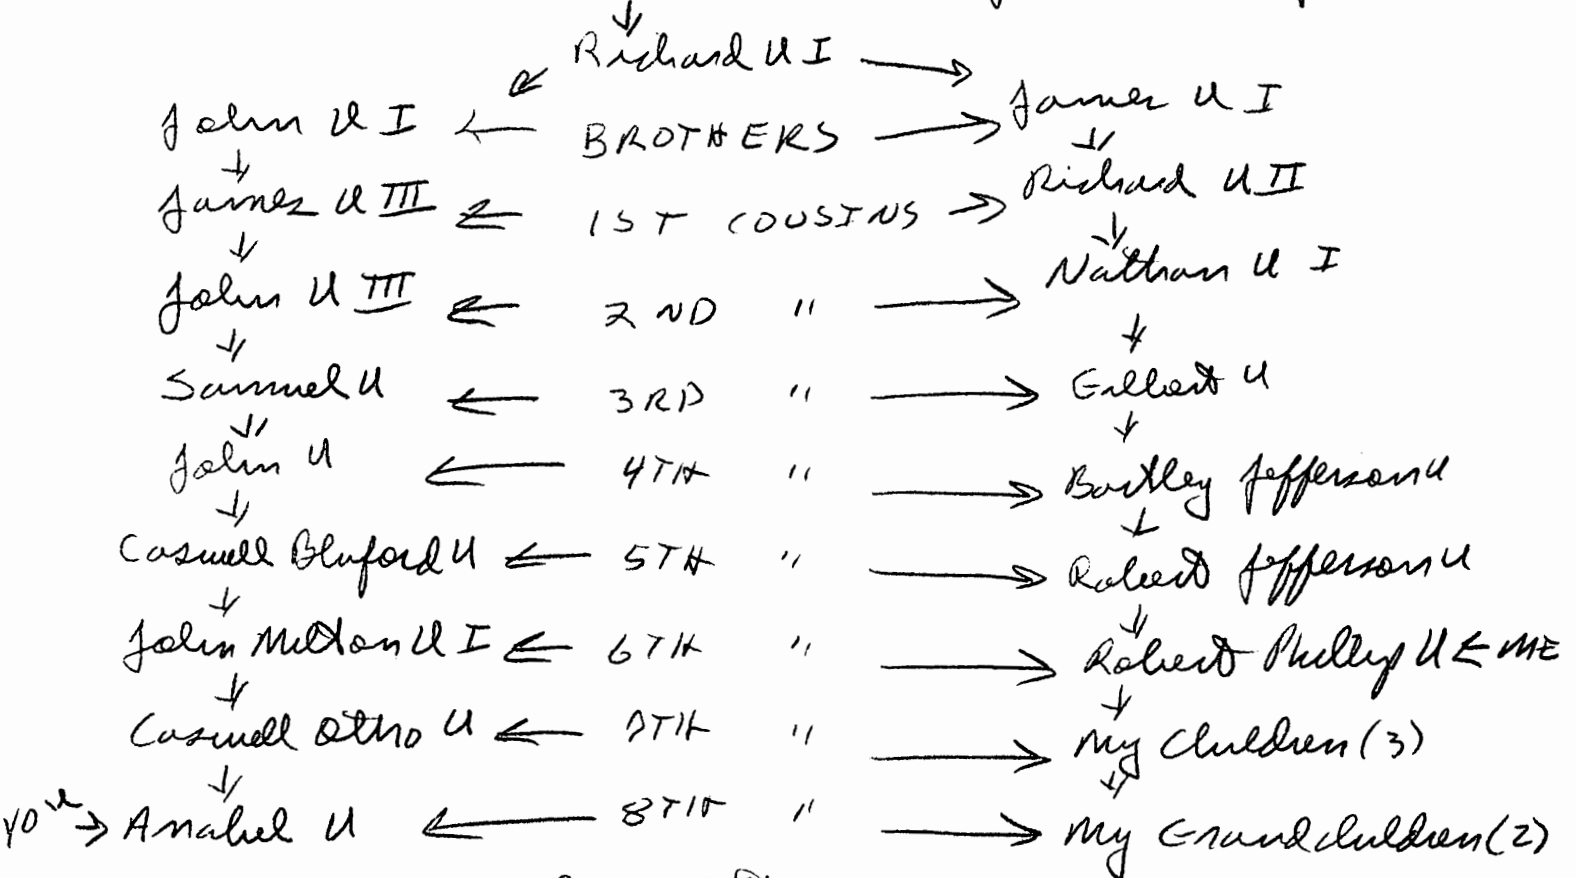 Richard U I
John U I ← BROTHERS → James U I
James U III ← 1ST COUSINS → Richard U II
John U III ← 2ND " → Nathan U I
Samuel U ← 3RD " → Gilbert U
John U ← 4TH " → Bartley Jefferson U
Caswell Bluford U ← 5TH " → Robert Jefferson U
John Milton U I ← 6TH " → Robert Phillip U ← ME
Caswell Otho U ← 7TH " → My Children (3)
YOU → Anabel U ← 8TH " → My Grandchildren (2)